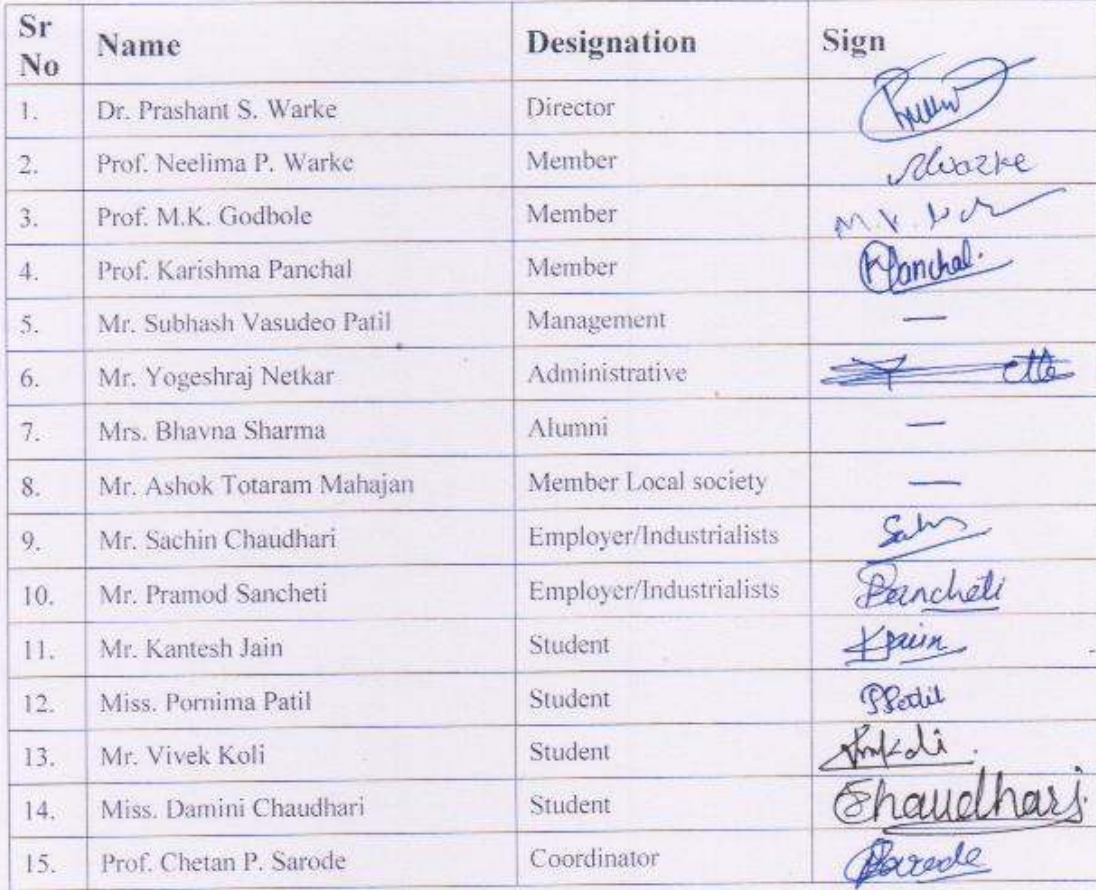 Sr No Name Designation Sign
1. Dr. Prashant S. Warke Director
2. Prof. Neelima P. Warke Member
3. Prof. M.K. Godbole Member M.K.
4. Prof. Karishma Panchal Member KPanchal.
5. Mr. Subhash Vasudeo Patil Management —
6. Mr. Yogeshraj Netkar Administrative
7. Mrs. Bhavna Sharma Alumni —
8. Mr. Ashok Totaram Mahajan Member Local society —
9. Mr. Sachin Chaudhari Employer/Industrialists
10. Mr. Pramod Sancheti Employer/Industrialists Pancheti
11. Mr. Kantesh Jain Student KJain
12. Miss. Pornima Patil Student PPatil
13. Mr. Vivek Koli Student
14. Miss. Damini Chaudhari Student Chaudhari.
15. Prof. Chetan P. Sarode Coordinator